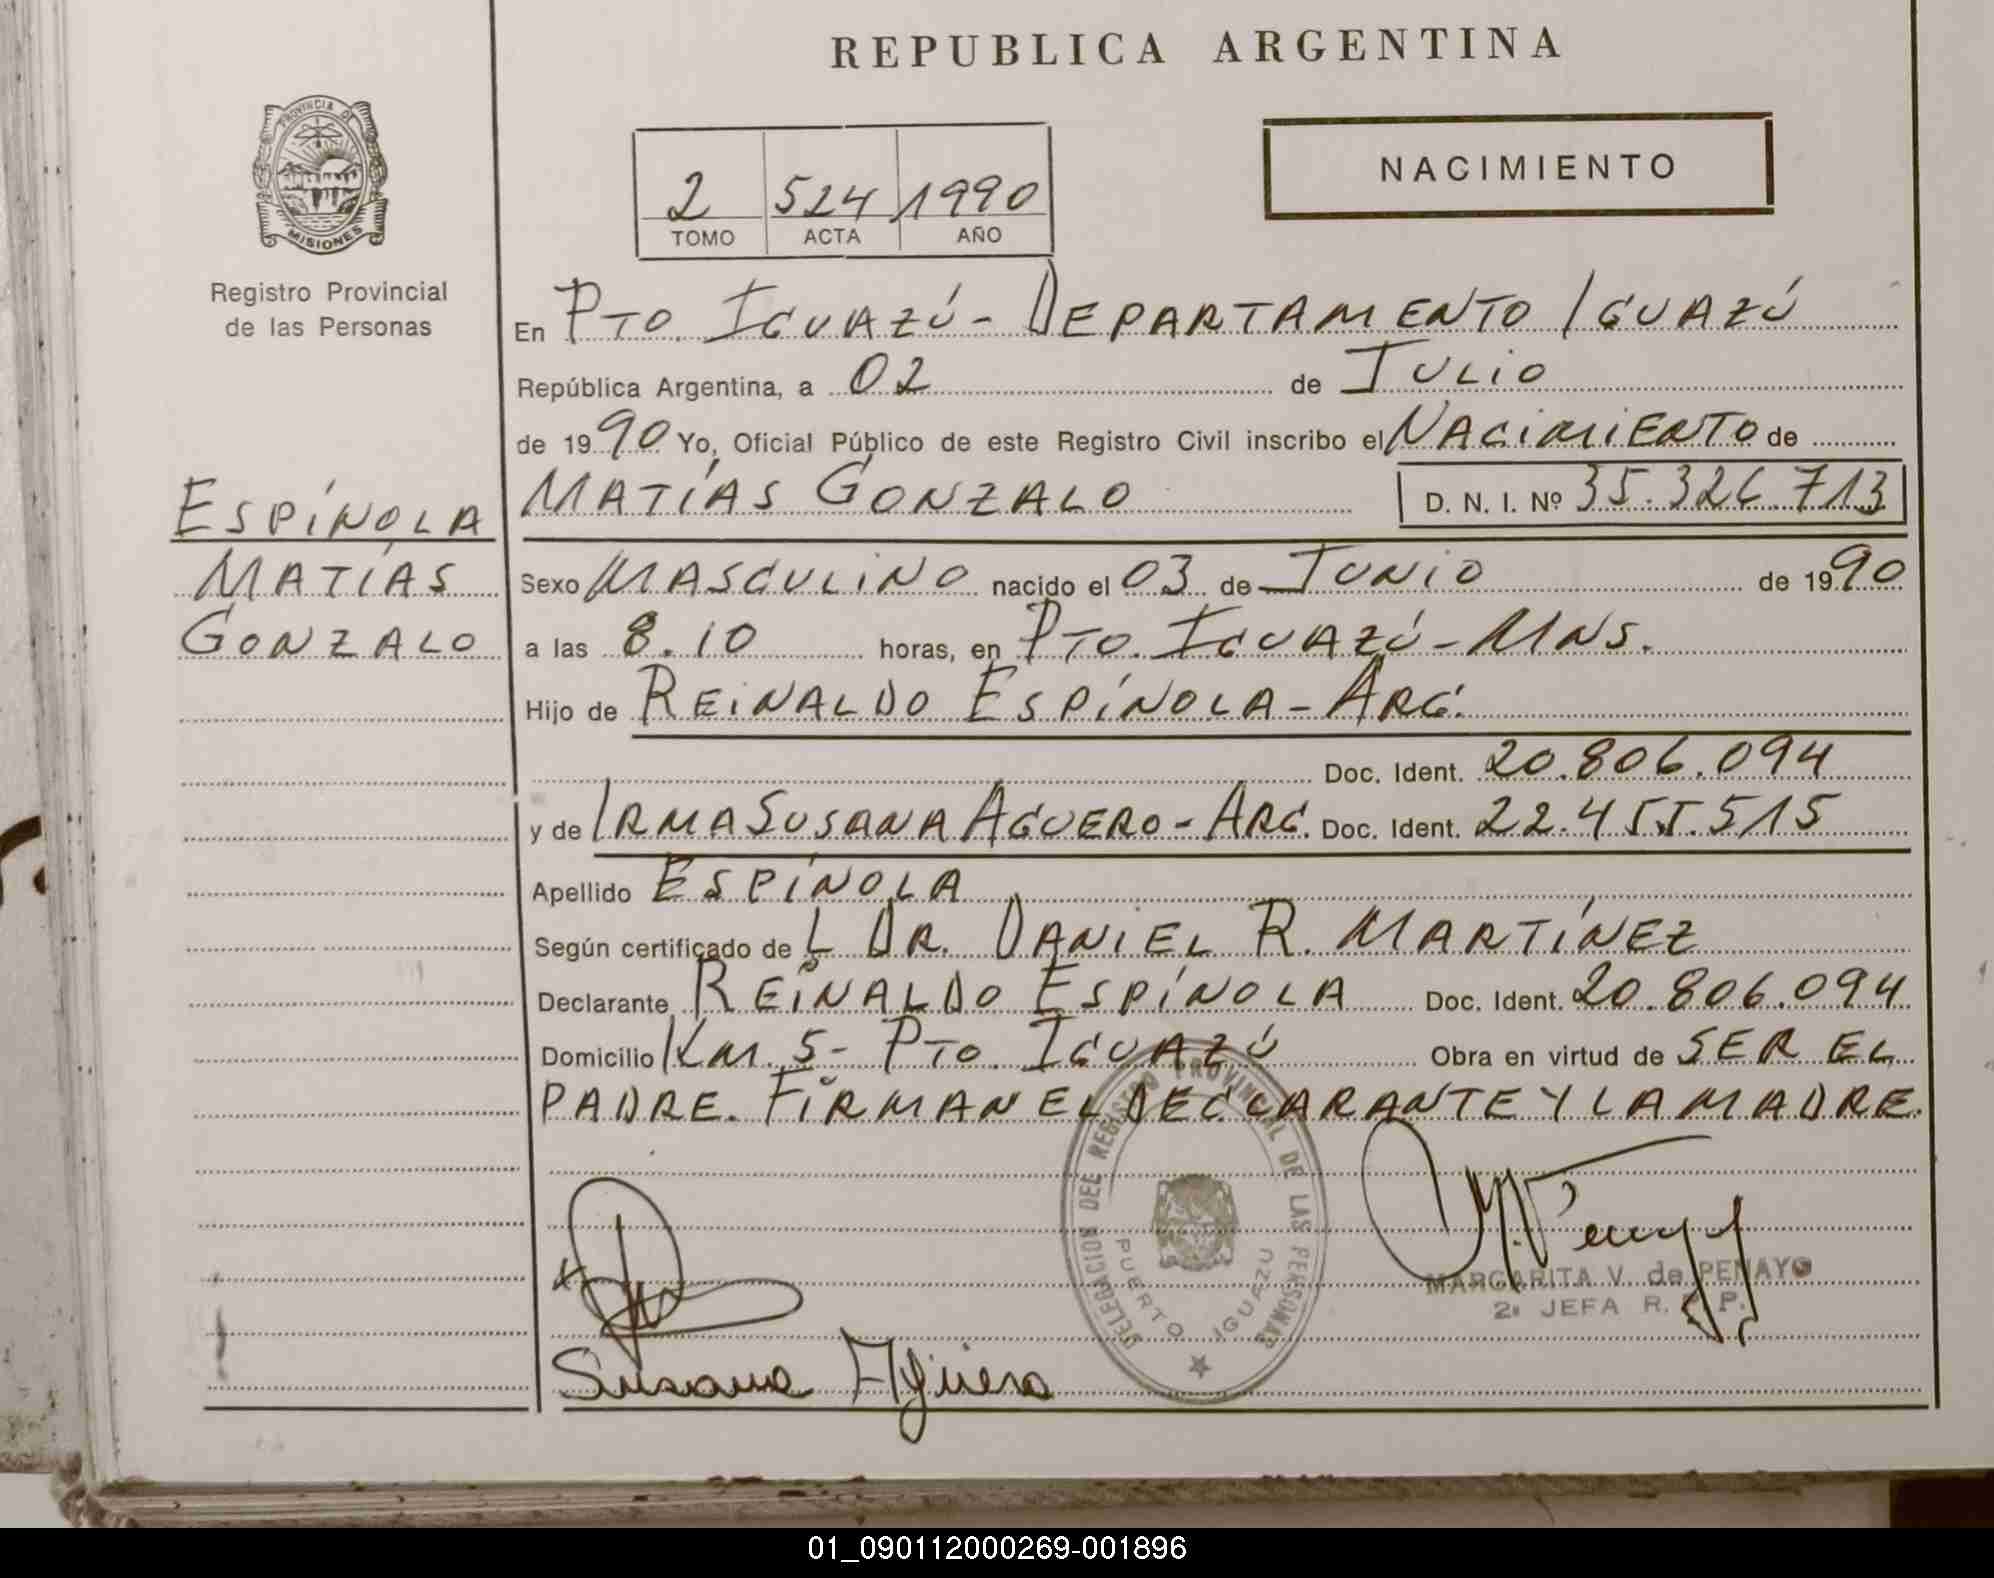 REPUBLICA ARGENTINA
PROVINCIA DE
MISIONES
Registro Provincial
de las Personas
2 524 1990
TOMO ACTA AÑO
NACIMIENTO
En PTO. IGUAZÚ - DEPARTAMENTO IGUAZÚ
República Argentina, a 02 de JULIO
de 1990 Yo, Oficial Público de este Registro Civil inscribo el NACIMIENTO de
ESPÍNOLA
MATÍAS
GONZALO
MATÍAS GONZALO D. N. I. Nº 35.326.713
Sexo MASCULINO nacido el 03 de JUNIO de 1990
a las 8.10 horas, en PTO. IGUAZÚ - MNS.
Hijo de REINALDO ESPÍNOLA - ARG.
Doc. Ident. 20.806.094
y de IRMA SUSANA AGUERO - ARG. Doc. Ident. 22.455.515
Apellido ESPÍNOLA
Según certificado de L DR. DANIEL R. MARTÍNEZ
Declarante REINALDO ESPÍNOLA Doc. Ident. 20.806.094
Domicilio Km. 5 - PTO. IGUAZÚ Obra en virtud de SER EL
PADRE. FIRMAN EL DECLARANTE Y LA MADRE.
DELEGACION DEL REGISTRO PROVINCIAL DE LAS PERSONAS
PUERTO IGUAZU
MARGARITA V. de PENAYO
2ª JEFA R. P. P.
Susana Agüero
01_090112000269-001896